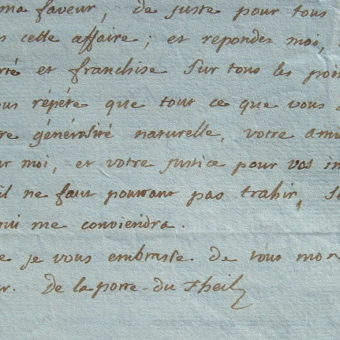 ma faveur, de juste pour tous
s cette affaire; et repondes moi,
rté et franchise sur tous les poi
ous répéte que tout ce que vous
re générosité naturelle, votre ami
ur moi, et votre justice pour vos in
il ne faut pourtant pas trahir, s
ui me conviendra.
e je vous embrasse de tous mon
r. De la porre-du Theil